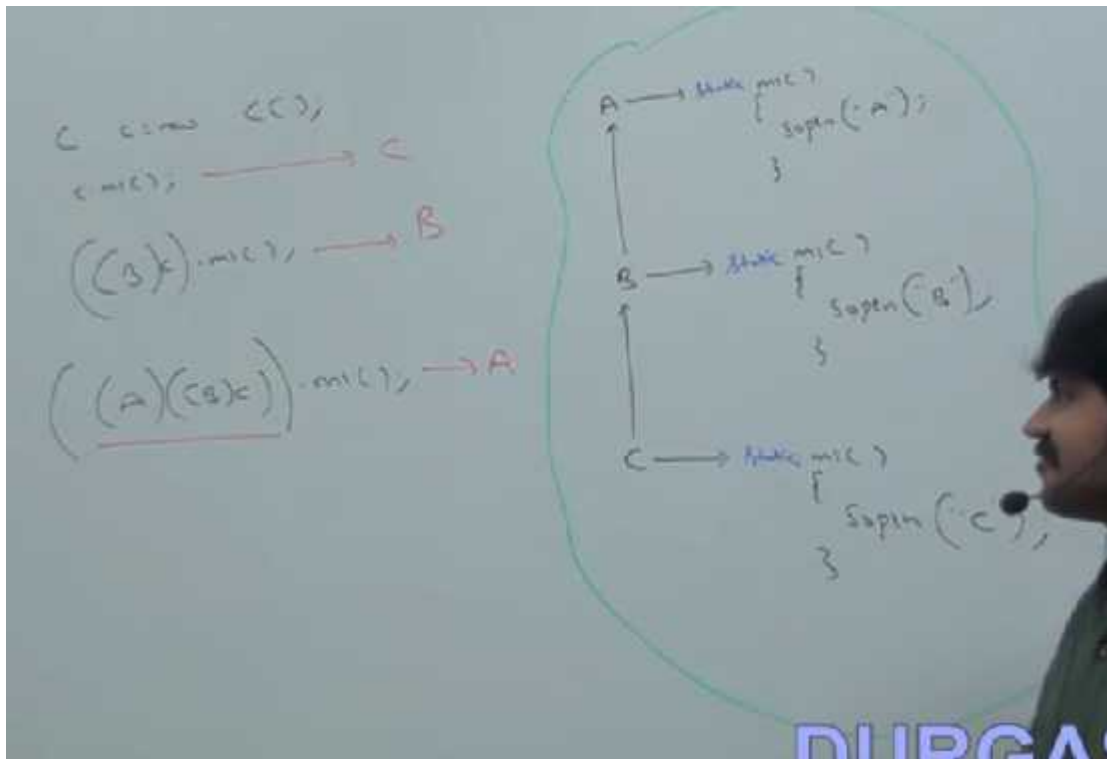 C c=new C();
c.m1(); → C
((B)c).m1(); → B
((A)((B)c)).m1(); → A
A → static m1()
{
sopln("A");
}
B → static m1()
{
sopln("B");
}
C → static m1()
{
sopln("C");
}
DURGAS